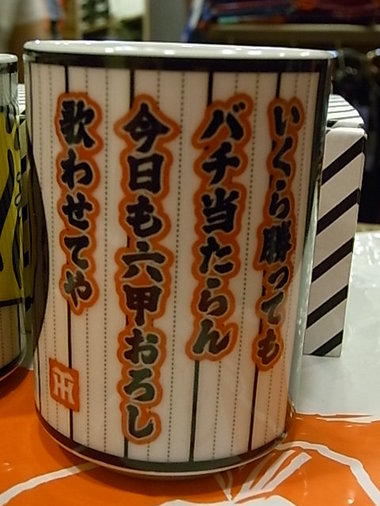 いくら勝っても
バチ当たらん
今日も六甲おろし
歌わせてや